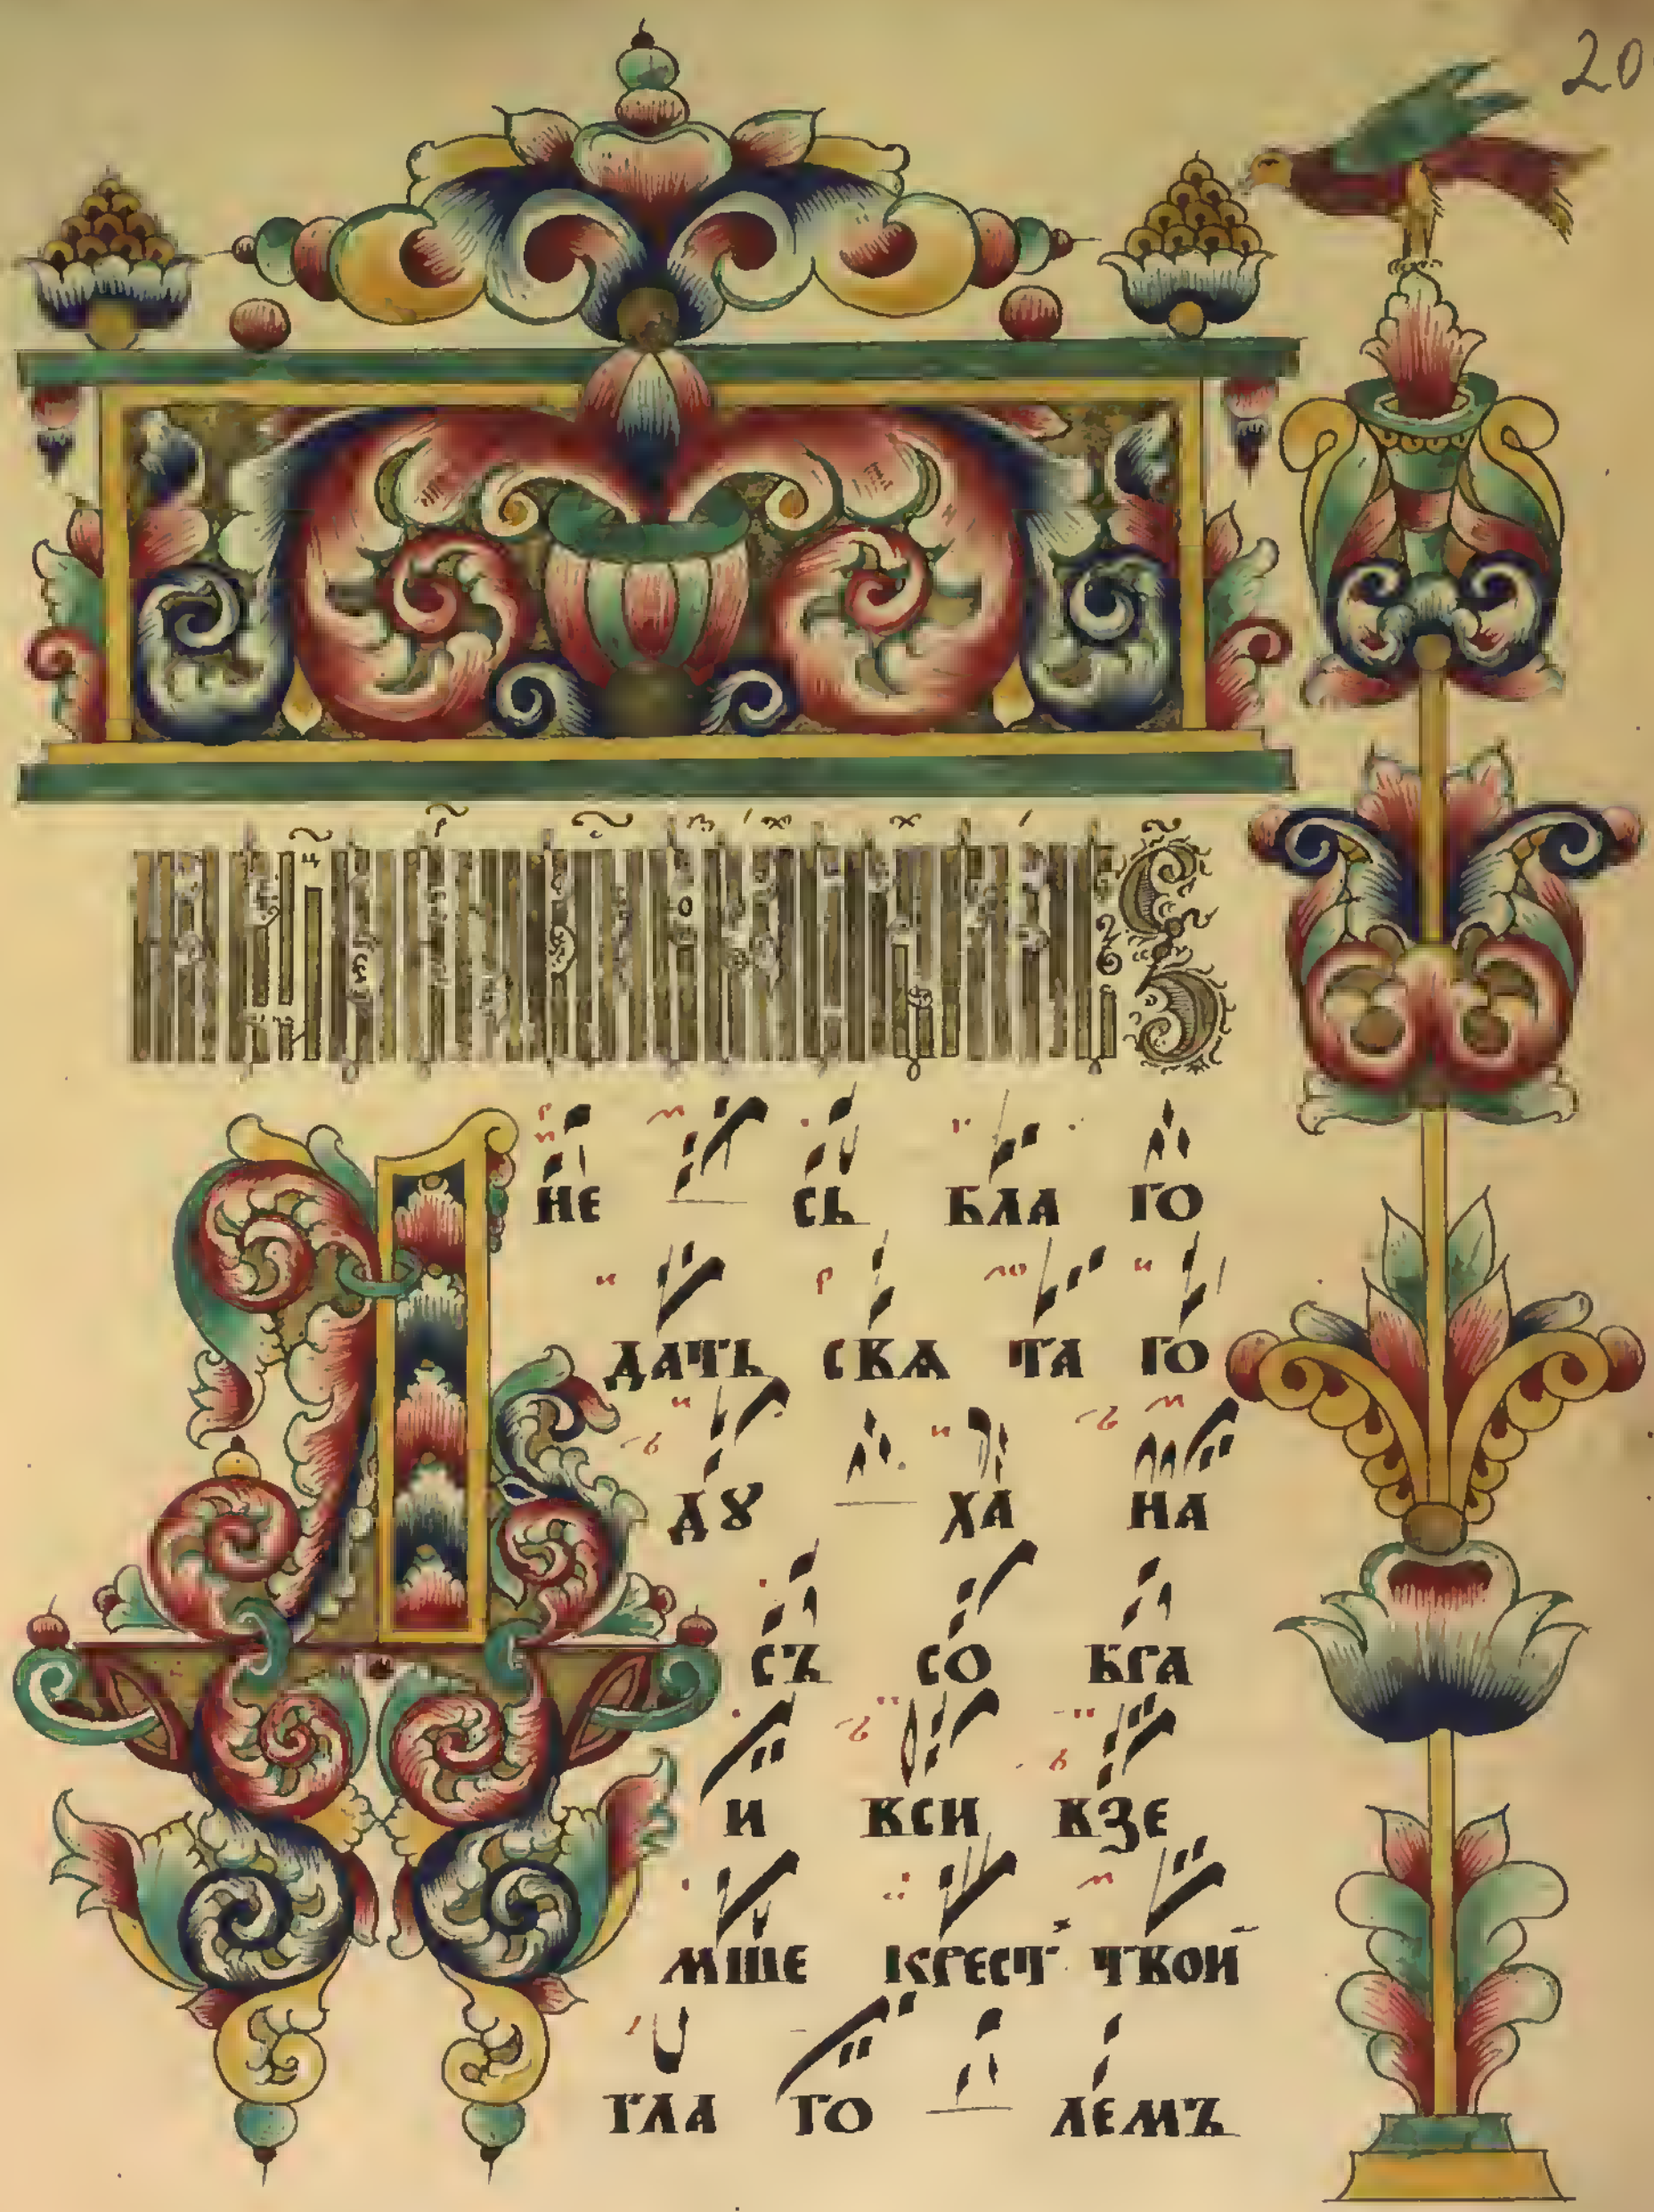 20
Д НЕ СЬ БЛА ГО
ДАТЬ СВѦ ТА ГО
ДꙊ ХА НА
СЪ СО БРА
И ВСИ ВЗЕ
МШЕ КРЕСТ ТВОИ
ГЛА ГО ЛЕМЪ